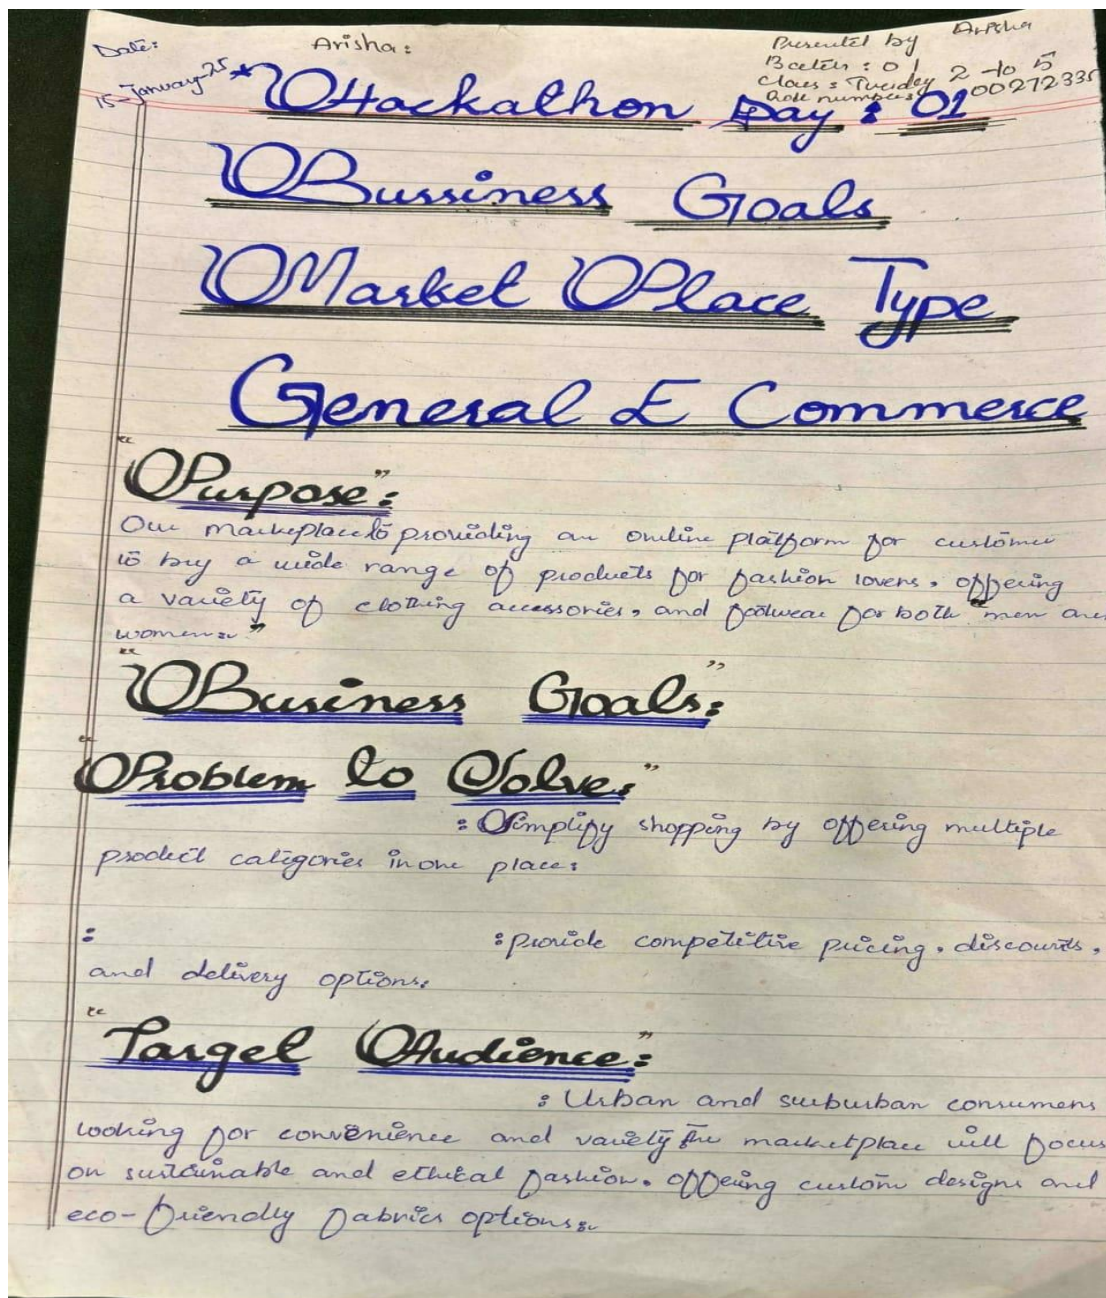 Date:
15-January-25
Arisha:
Presented by Arisha
Batch: 01
Class: Tuesday 2 to 5
Role numbers 00272335
Hackathon Day: 01
Bussiness Goals
Market Place Type
General E Commerce
"Purpose":
Our markeplace to providing an online platform for customer
to buy a wide range of products for fashion lovers, offering
a variety of clothing accessories, and footwear for both "men and
women."
"Business Goals":
"Problem to Solve:"
: Simplify shopping by offering multiple
product categories in one place:
: : provide competitive pricing, discounts,
and delivery options:
"Target Audience":
: Urban and suburban consumers
looking for convenience and variety the marketplace will focus
on sustainable and ethical fashion. offering custom designs and
eco-friendly fabrics options: